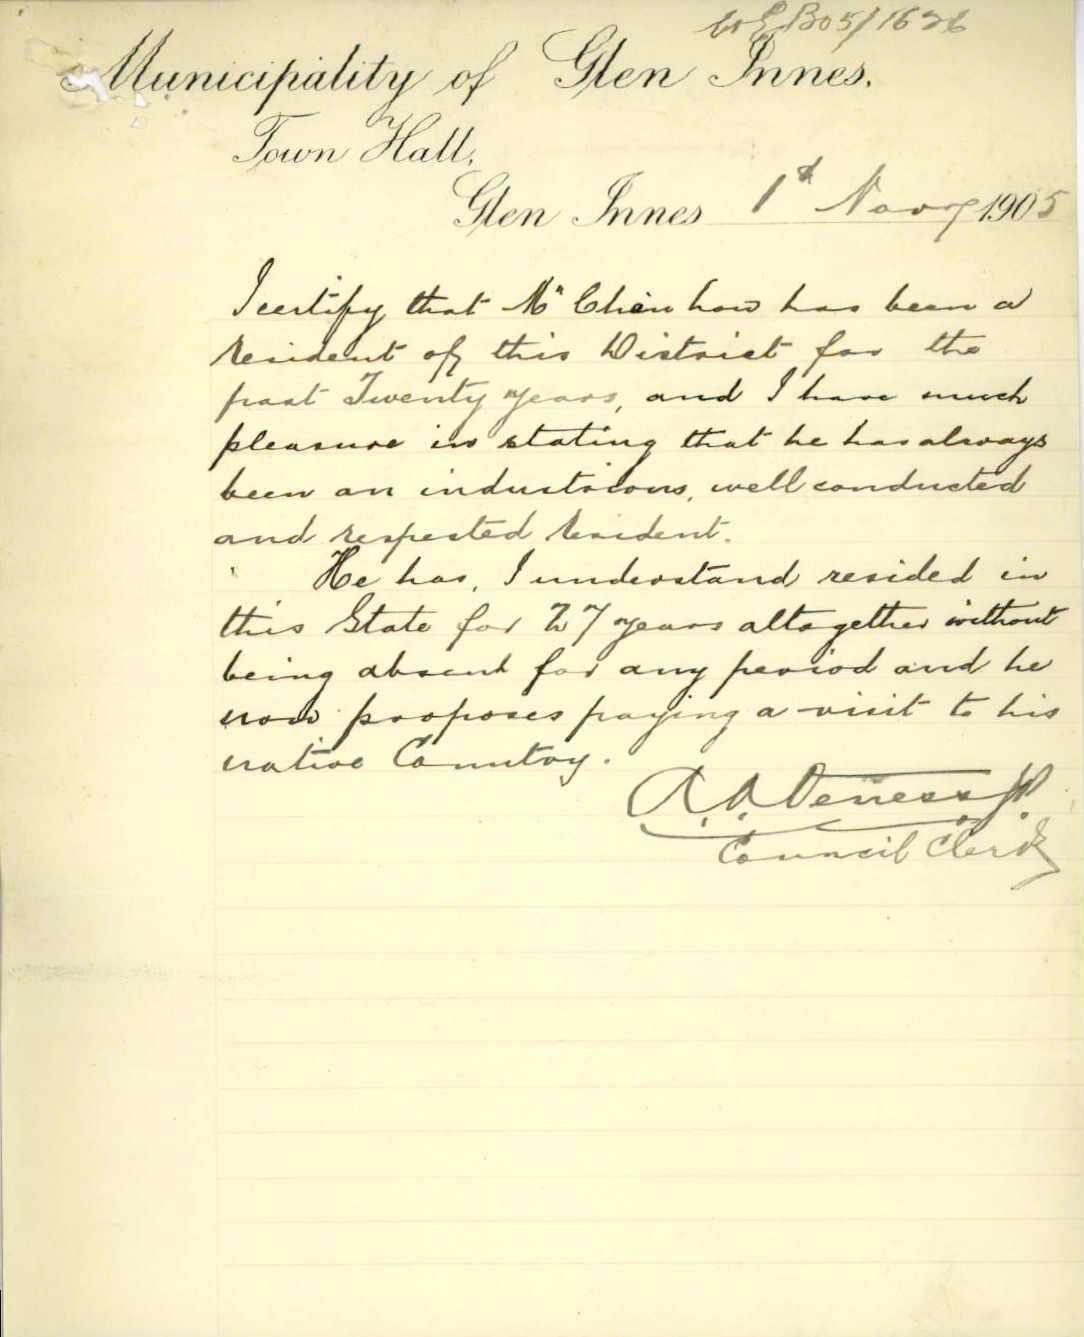 B05/1626
Municipality of Glen Innes.
Town Hall,
Glen Innes 1st Novr 1905
I certify that Mr Chin how has been a
resident of this District for the
past Twenty years, and I have much
pleasure in stating that he has always
been an industrious, well conducted
and respected resident.
He has, I understand resided in
this State for 27 years altogether without
being absent for any period and he
now proposes paying a visit to his
native Country.
JP
Council Clerk